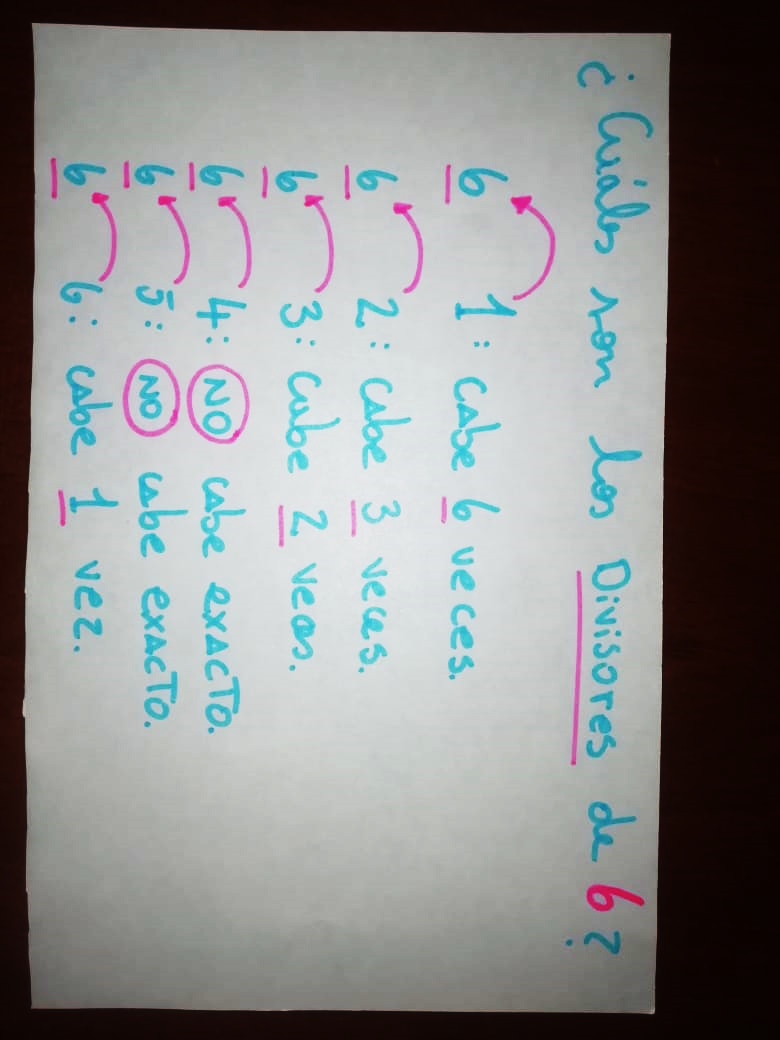 ¿Cuáles son los Divisores de 6?
6 1: Cabe 6 veces.
6 2: Cabe 3 veces.
6 3: Cabe 2 veces.
6 4: NO cabe EXACTO.
6 5: NO cabe EXACTO.
6 6: cabe 1 vez.